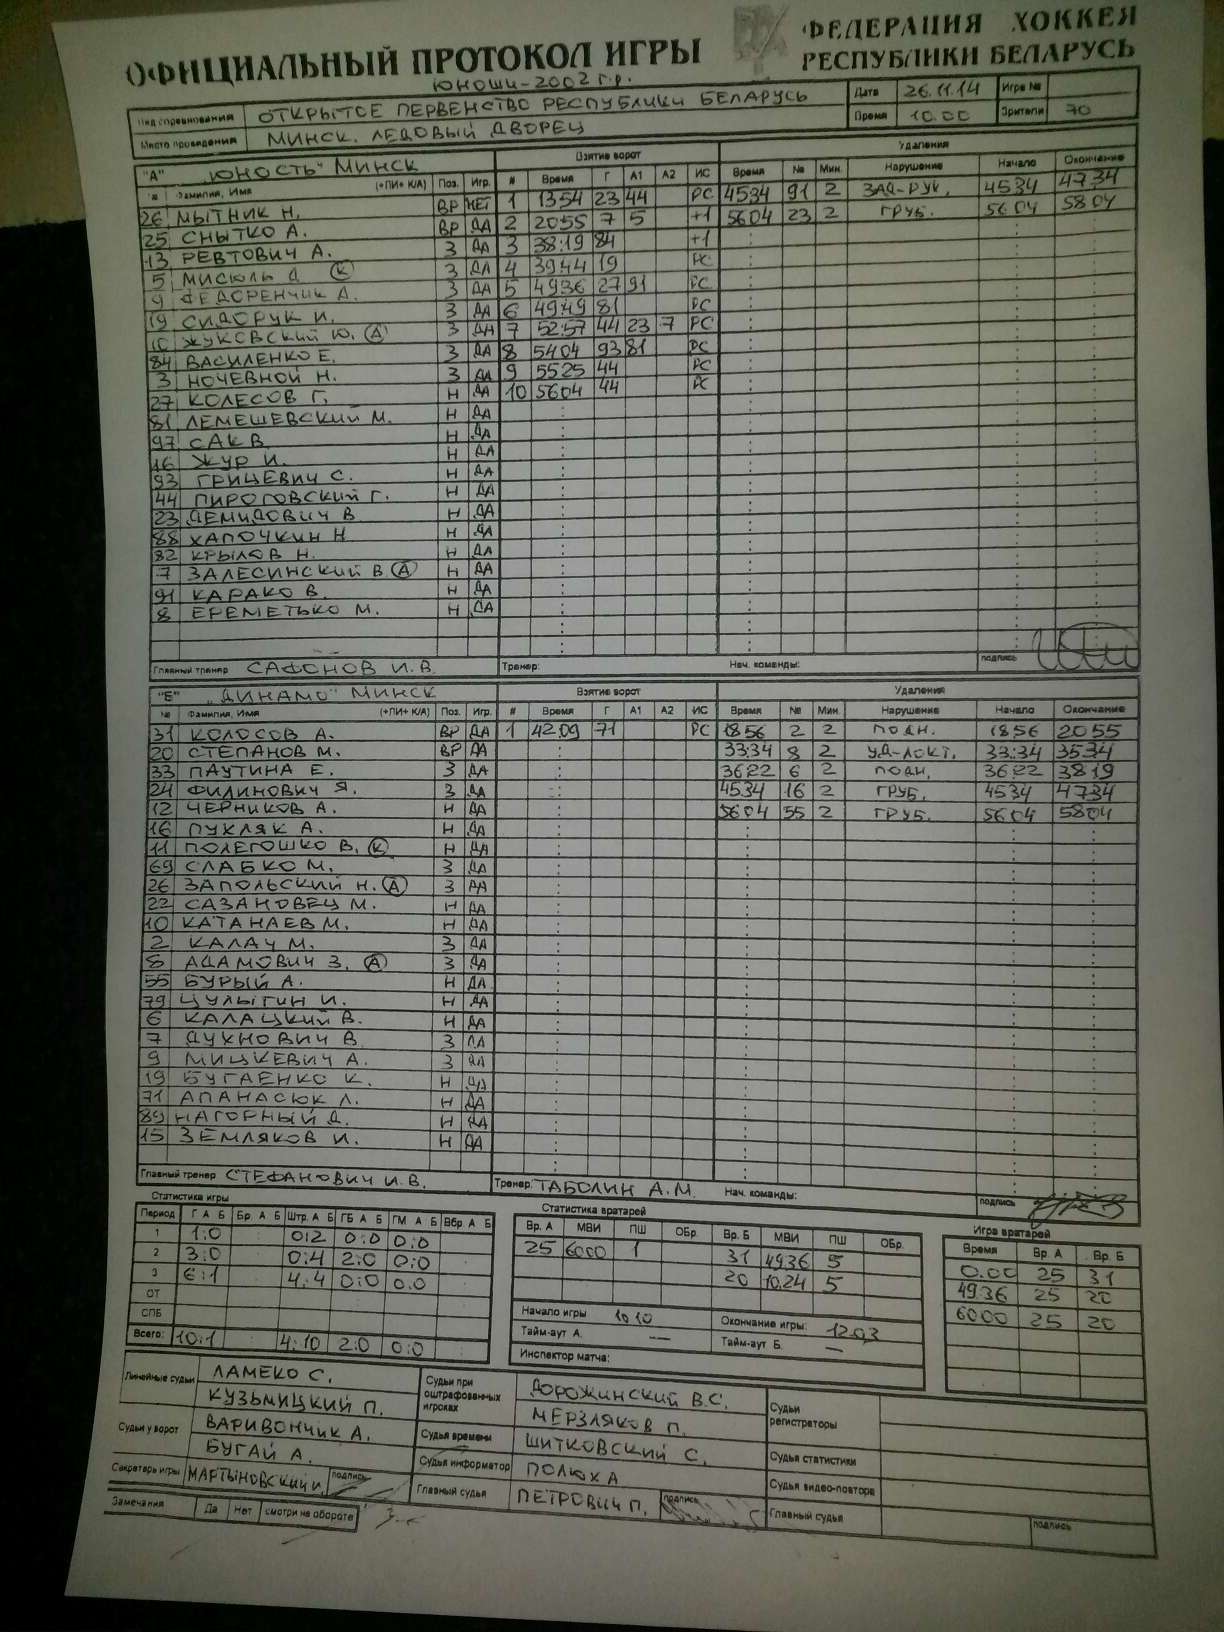 ОФИЦИАЛЬНЫЙ ПРОТОКОЛ ИГРЫ
ФЕДЕРАЦИЯ ХОККЕЯ
РЕСПУБЛИКИ БЕЛАРУСЬ
ЮНОШИ-2002 г.р.
Вид соревнования ОТКРЫТОЕ ПЕРВЕНСТВО РЕСПУБЛИКИ БЕЛАРУСЬ Дата 26.11.14 Игра №
Место проведения МИНСК. ЛЕДОВЫЙ ДВОРЕЦ Время 10.00 Зрители 70
"А" "ЮНОСТЬ" МИНСК Взятие ворот Удаления
№ Фамилия, Имя (+ПИ+ К/А) Поз. Игр. # Время Г А1 А2 ИС Время № Мин. Нарушение Начало Окончание
26 МЫТНИК Н. ВР НЕТ 1 13:54 23 44 РС 45:34 91 2 ЗАД-РУК. 45:34 47:34
25 СНЫТКО А. ВР ДА 2 20:55 7 5 +1 56:04 23 2 ГРУБ. 56:04 58:04
13 РЕВТОВИЧ А. З ДА 3 38:19 84 +1
5 МИСЮЛЬ Д. (К) З ДА 4 39:44 19 РС
9 ФЕДОРЕНЧИК Д. З ДА 5 49:36 27 91 РС
19 СИДОРУК И. З ДА 6 49:49 81 РС
10 ЖУКОВСКИЙ Ю. (А) З ДА 7 52:57 44 23 7 РС
84 ВАСИЛЕНКО Е. З ДА 8 54:04 93 81 РС
3 НОЧЕВНОЙ Н. З ДА 9 55:25 44 РС
27 КОЛЕСОВ Г. Н ДА 10 56:04 44 РС
81 ЛЕМЕШЕВСКИЙ М. Н ДА
97 САК В. Н ДА
16 ЖУР И. Н ДА
93 ГРИЦЕВИЧ С. Н ДА
44 ПИРОГОВСКИЙ Г. Н ДА
23 ДЕМИДОВИЧ В Н ДА
88 ХАПОЧКИН Н Н ДА
82 КРЫЛОВ Н. Н ДА
7 ЗАЛЕСИНСКИЙ В. (А) Н ДА
91 КАРАКО В. Н ДА
8 ЕРЕМЕТЬКО М. Н ДА
Главный тренер САФОНОВ И.В. Тренер: Нач. команды: подпись
"Б" "ДИНАМО" МИНСК Взятие ворот Удаления
№ Фамилия, Имя (+ПИ+ К/А) Поз. Игр. # Время Г А1 А2 ИС Время № Мин. Нарушение Начало Окончание
31 КОЛОСОВ А. ВР ДА 1 42:09 71 РС 18:56 2 2 ПОДН. 18:56 20:55
20 СТЕПАНОВ М. ВР ДА 33:34 8 2 УД-ЛОКТ. 33:34 35:34
33 ПАУТИНА Е. З ДА 36:22 6 2 ПОДН. 36:22 38:19
24 ФИЛИНОВИЧ Я. З ДА 45:34 16 2 ГРУБ. 45:34 47:34
12 ЧЕРНИКОВ А. Н ДА 56:04 55 2 ГРУБ. 56:04 58:04
16 ПУКЛЯК А. Н ДА
11 ПОЛЕГОШКО В. (К) Н ДА
69 СЛАБКО М. З ДА
26 ЗАПОЛЬСКИЙ Н. (А) З ДА
22 САЗАНОВЕЦ М. Н ДА
10 КАТАНАЕВ М. Н ДА
2 КАЛАЧ М. З ДА
8 АДАМОВИЧ З. (А) З ДА
55 БУРЫЙ А. Н ДА
79 ЦУЛЫГИН И. Н ДА
6 КАЛАЦКИЙ В. Н ДА
7 ДУХНОВИЧ В. З ДА
9 МИЦКЕВИЧ А. З ДА
19 БУГАЕНКО К. Н ДА
71 АПАНАСЮК Л. Н ДА
89 НАГОРНЫЙ Д. Н ДА
15 ЗЕМЛЯКОВ И. Н ДА
Главный тренер СТЕФАНОВИЧ И.В. Тренер: ТАБОЛИН А.М. Нач. команды: подпись
Статистика игры
Период Г А Б Бр. А Б Штр. А Б ГБ А Б ГМ А Б Вбр. А Б
1 1:0 0:2 0:0 0:0
2 3:0 0:4 2:0 0:0
3 6:1 4:4 0:0 0:0
ОТ
СПБ
Всего: 10:1 4:10 2:0 0:0
Статистика вратарей
Вр. А МВИ ПШ ОБр. Вр. Б МВИ ПШ ОБр.
25 60:00 1 31 49:36 5
20 10:24 5
Начало игры 10 10 Окончание игры: 12.03
Тайм-аут А. — Тайм-аут Б. —
Инспектор матча:
Игра вратарей
Время Вр. А Вр. Б
0.00 25 31
49:36 25 20
60:00 25 20
Линейные судьи ЛАМЕКО С.
КУЗЬМИЦКИЙ П.
Судьи у ворот ВАРИВОНЧИК А.
БУГАЙ А.
Секретарь игры МАРТЫНОВСКИЙ И. подпись
Замечания Да Нет смотри на обороте
Судьи при оштрафованных игроках ДОРОЖИНСКИЙ В.С.
МЕРЗЛЯКОВ П.
Судья времени ШИТКОВСКИЙ С.
Судья информатор ПОЛЮХ А
Главный судья ПЕТРОВИЧ П. подпись
Судьи регистраторы
Судья статистики
Судья видео-повтора
Главный судья подпись